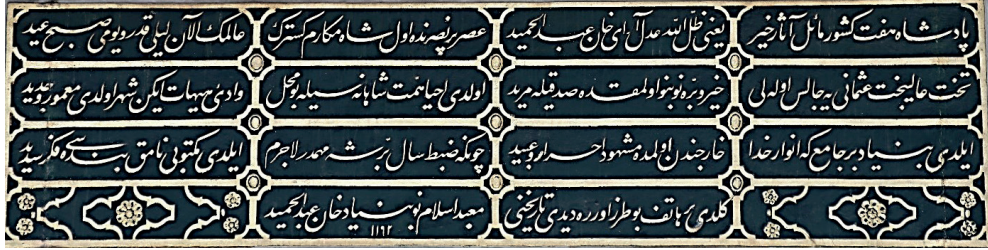 پادشاه هفت کشور مائل آثار خیر یعنی ظل الله عدل آرای خان عبد الحمید عصر پر نصرنده اول شاه مکارم کسترك عالمك الآن لیلی قدر و یومی صبح عید
تخت عالیبخت عثمانی یه جالس اوله لی خیر و بره نو بنو اولمقده صدقیله مرید اولدی احیا همت شاهانه سیله بو محل وادئ هیهات ایکن شهر اولدی معمور
ایلدی بنیاد بر جامع که انوار خدا خارجندن اولمده مشهود احرار و عبید چونکه ضبط سال مهمدر لاجرم ایلدی مکتوبی نامق بنده سی ده فکر سدید
کلدی بر هاتف بو طرز اوزره دیدی تاریخنی معبد اسلام نو بنیاد خان عبد الحمید
١١٩٢